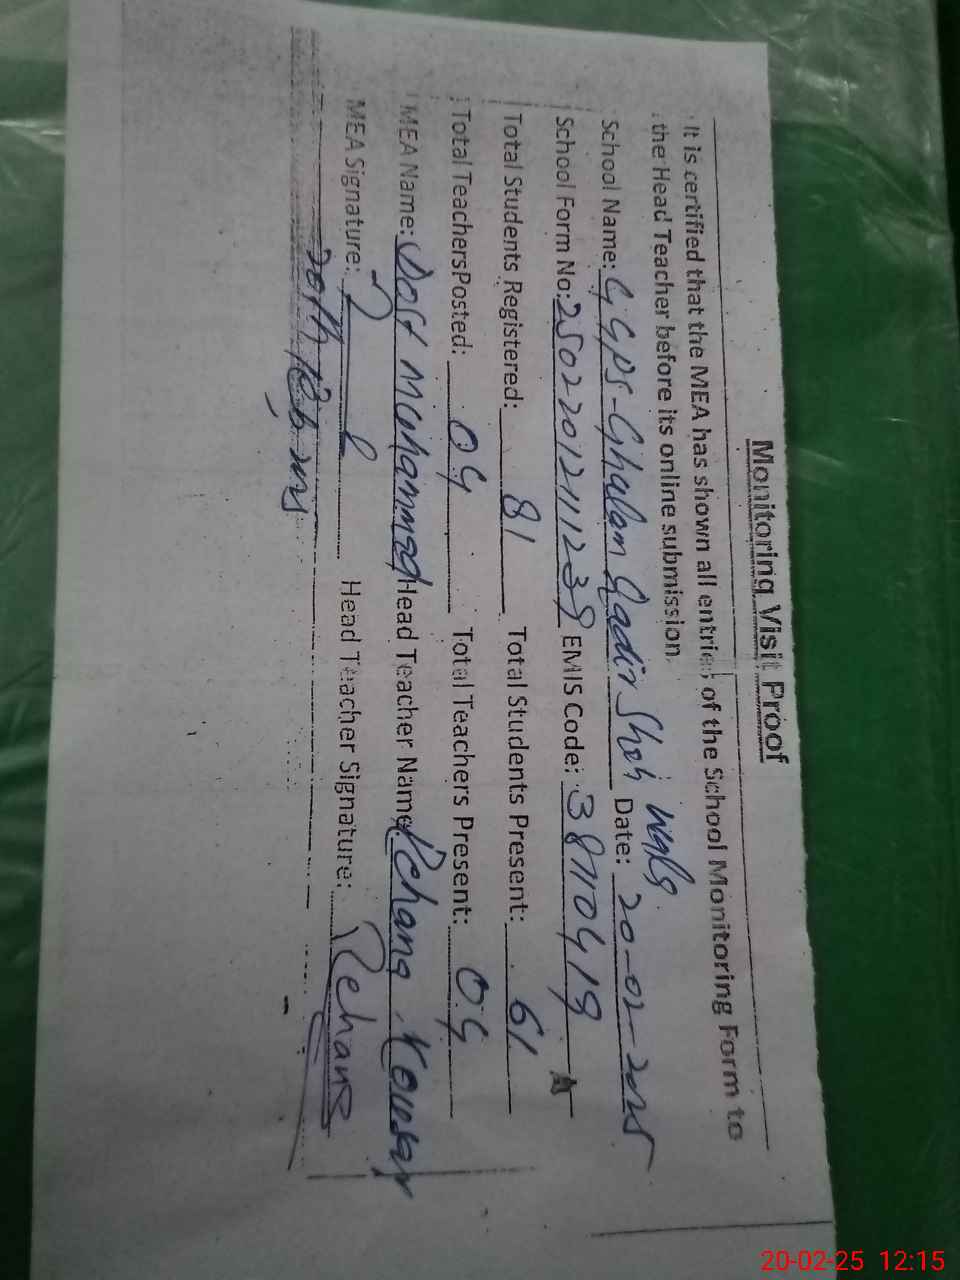 Monitoring Visit Proof
It is certified that the MEA has shown all entries of the School Monitoring Form to
the Head Teacher before its online submission.
School Name: GGPS-Ghulam Qadir Shah Date: 20-02-2025
School Form No: EMIS Code: 38110419
Total Students Registered: 81 Total Students Present: 61
Total TeachersPosted: 04 Total Teachers Present: 04
MEA Name: Dost Muhammad Head Teacher Name: Rehana Kousar
MEA Signature: Head Teacher Signature: Rehana
20-02-25 12:15